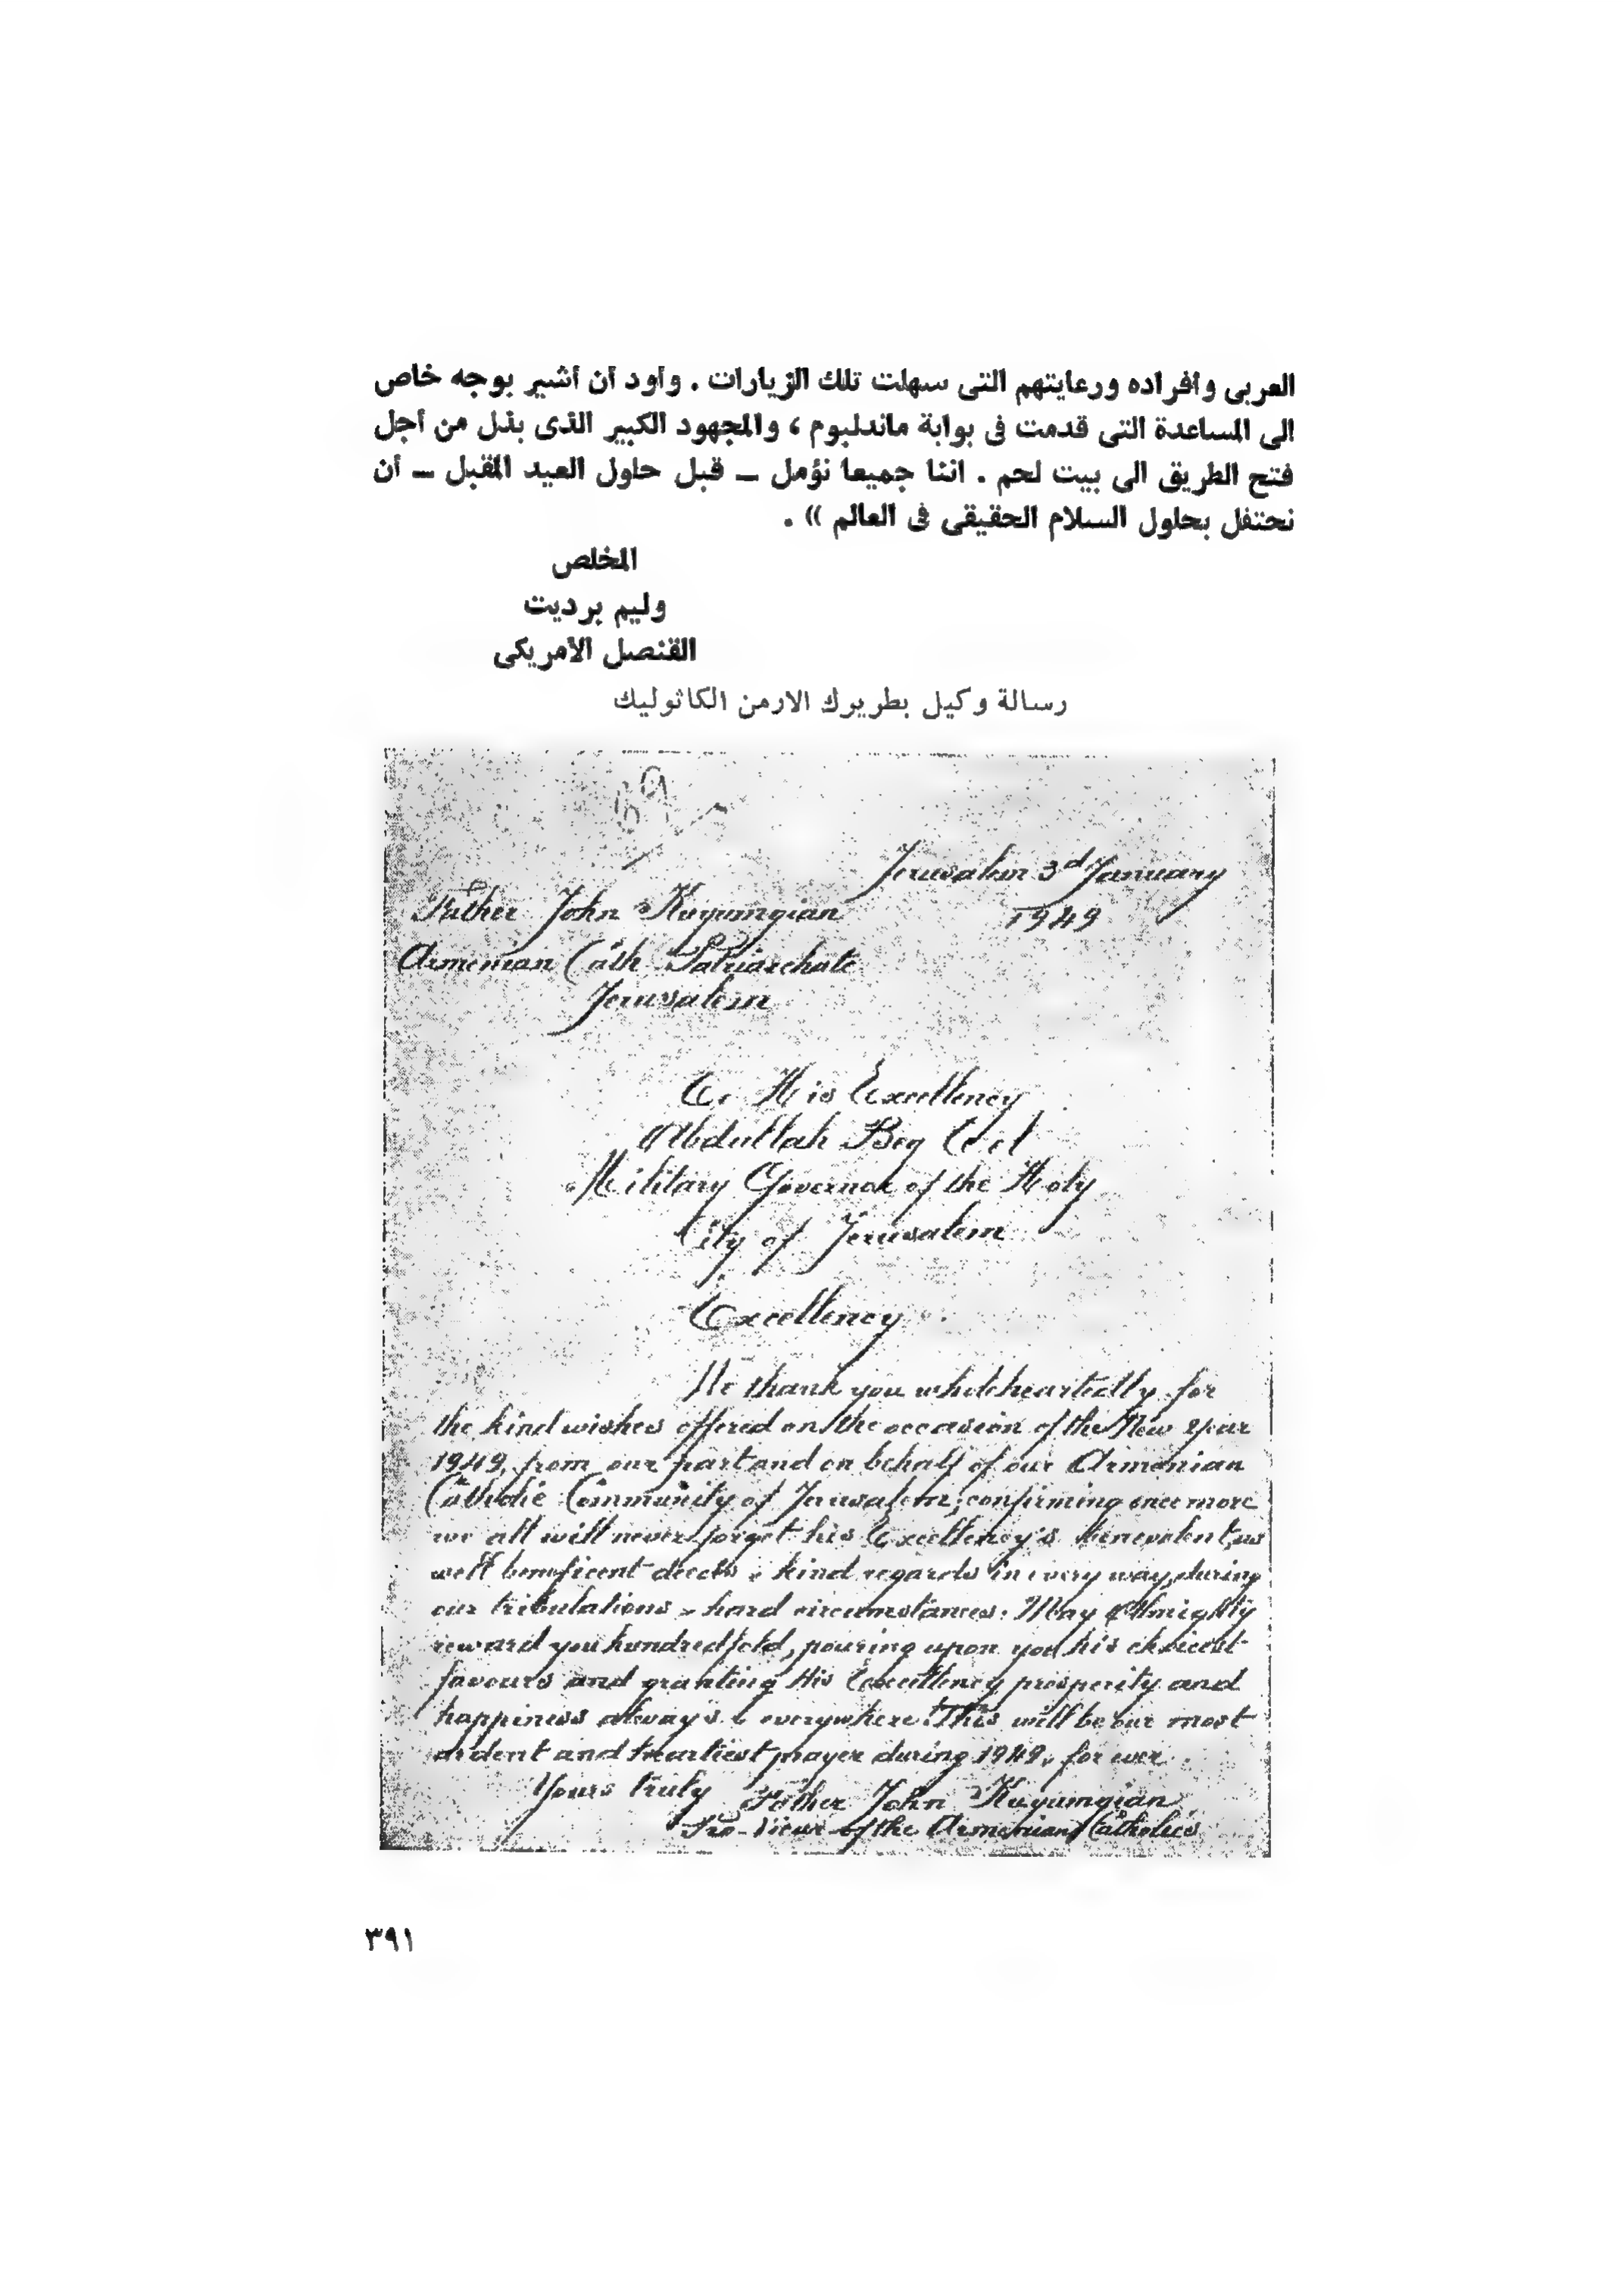 العربى وأفراده ورعايتهم التى سهلت تلك الزيارات . وأود أن أشير بوجه خاص
الى المساعدة التى قدمت فى بوابة ماندلبوم ، والمجهود الكبير الذى بذل من أجل
فتح الطريق الى بيت لحم . اننا جميعا نؤمل ــ قبل حلول العيد المقبل ــ أن
نحتفل بحلول السلام الحقيقى فى العالم » .
المخلص
وليم برديت
القنصل الأمريكى
رسالة وكيل بطريرك الارمن الكاثوليك
69
Jerusalem 3d January
1949
Father John Kuyumgian
Armenian Cath Patriarchate
Jerusalem
His Excellency
Abdullah Bey
Military Governor of the Holy
City of Jerusalem
Excellency
We thank you wholeheartedly for
the kind wishes offered on the occasion of the New Year
1949, from our part and on behalf of our Armenian
Catholic Community of Jerusalem; confirming once more
we all will never forget his Excellency's benevolent, as
well beneficent deeds & kind regards in every way, during
our tribulations & hard circumstances. May Almighty
reward you hundredfold, pouring upon you his choicest
favours and granting His Excellency prosperity and
happiness always & everywhere. This will be our most
ardent and heartiest prayer during 1949, for ever.
Yours truly Father John Kuyumgian
Pro-Vicar of the Armenian Catholics
٣٩١